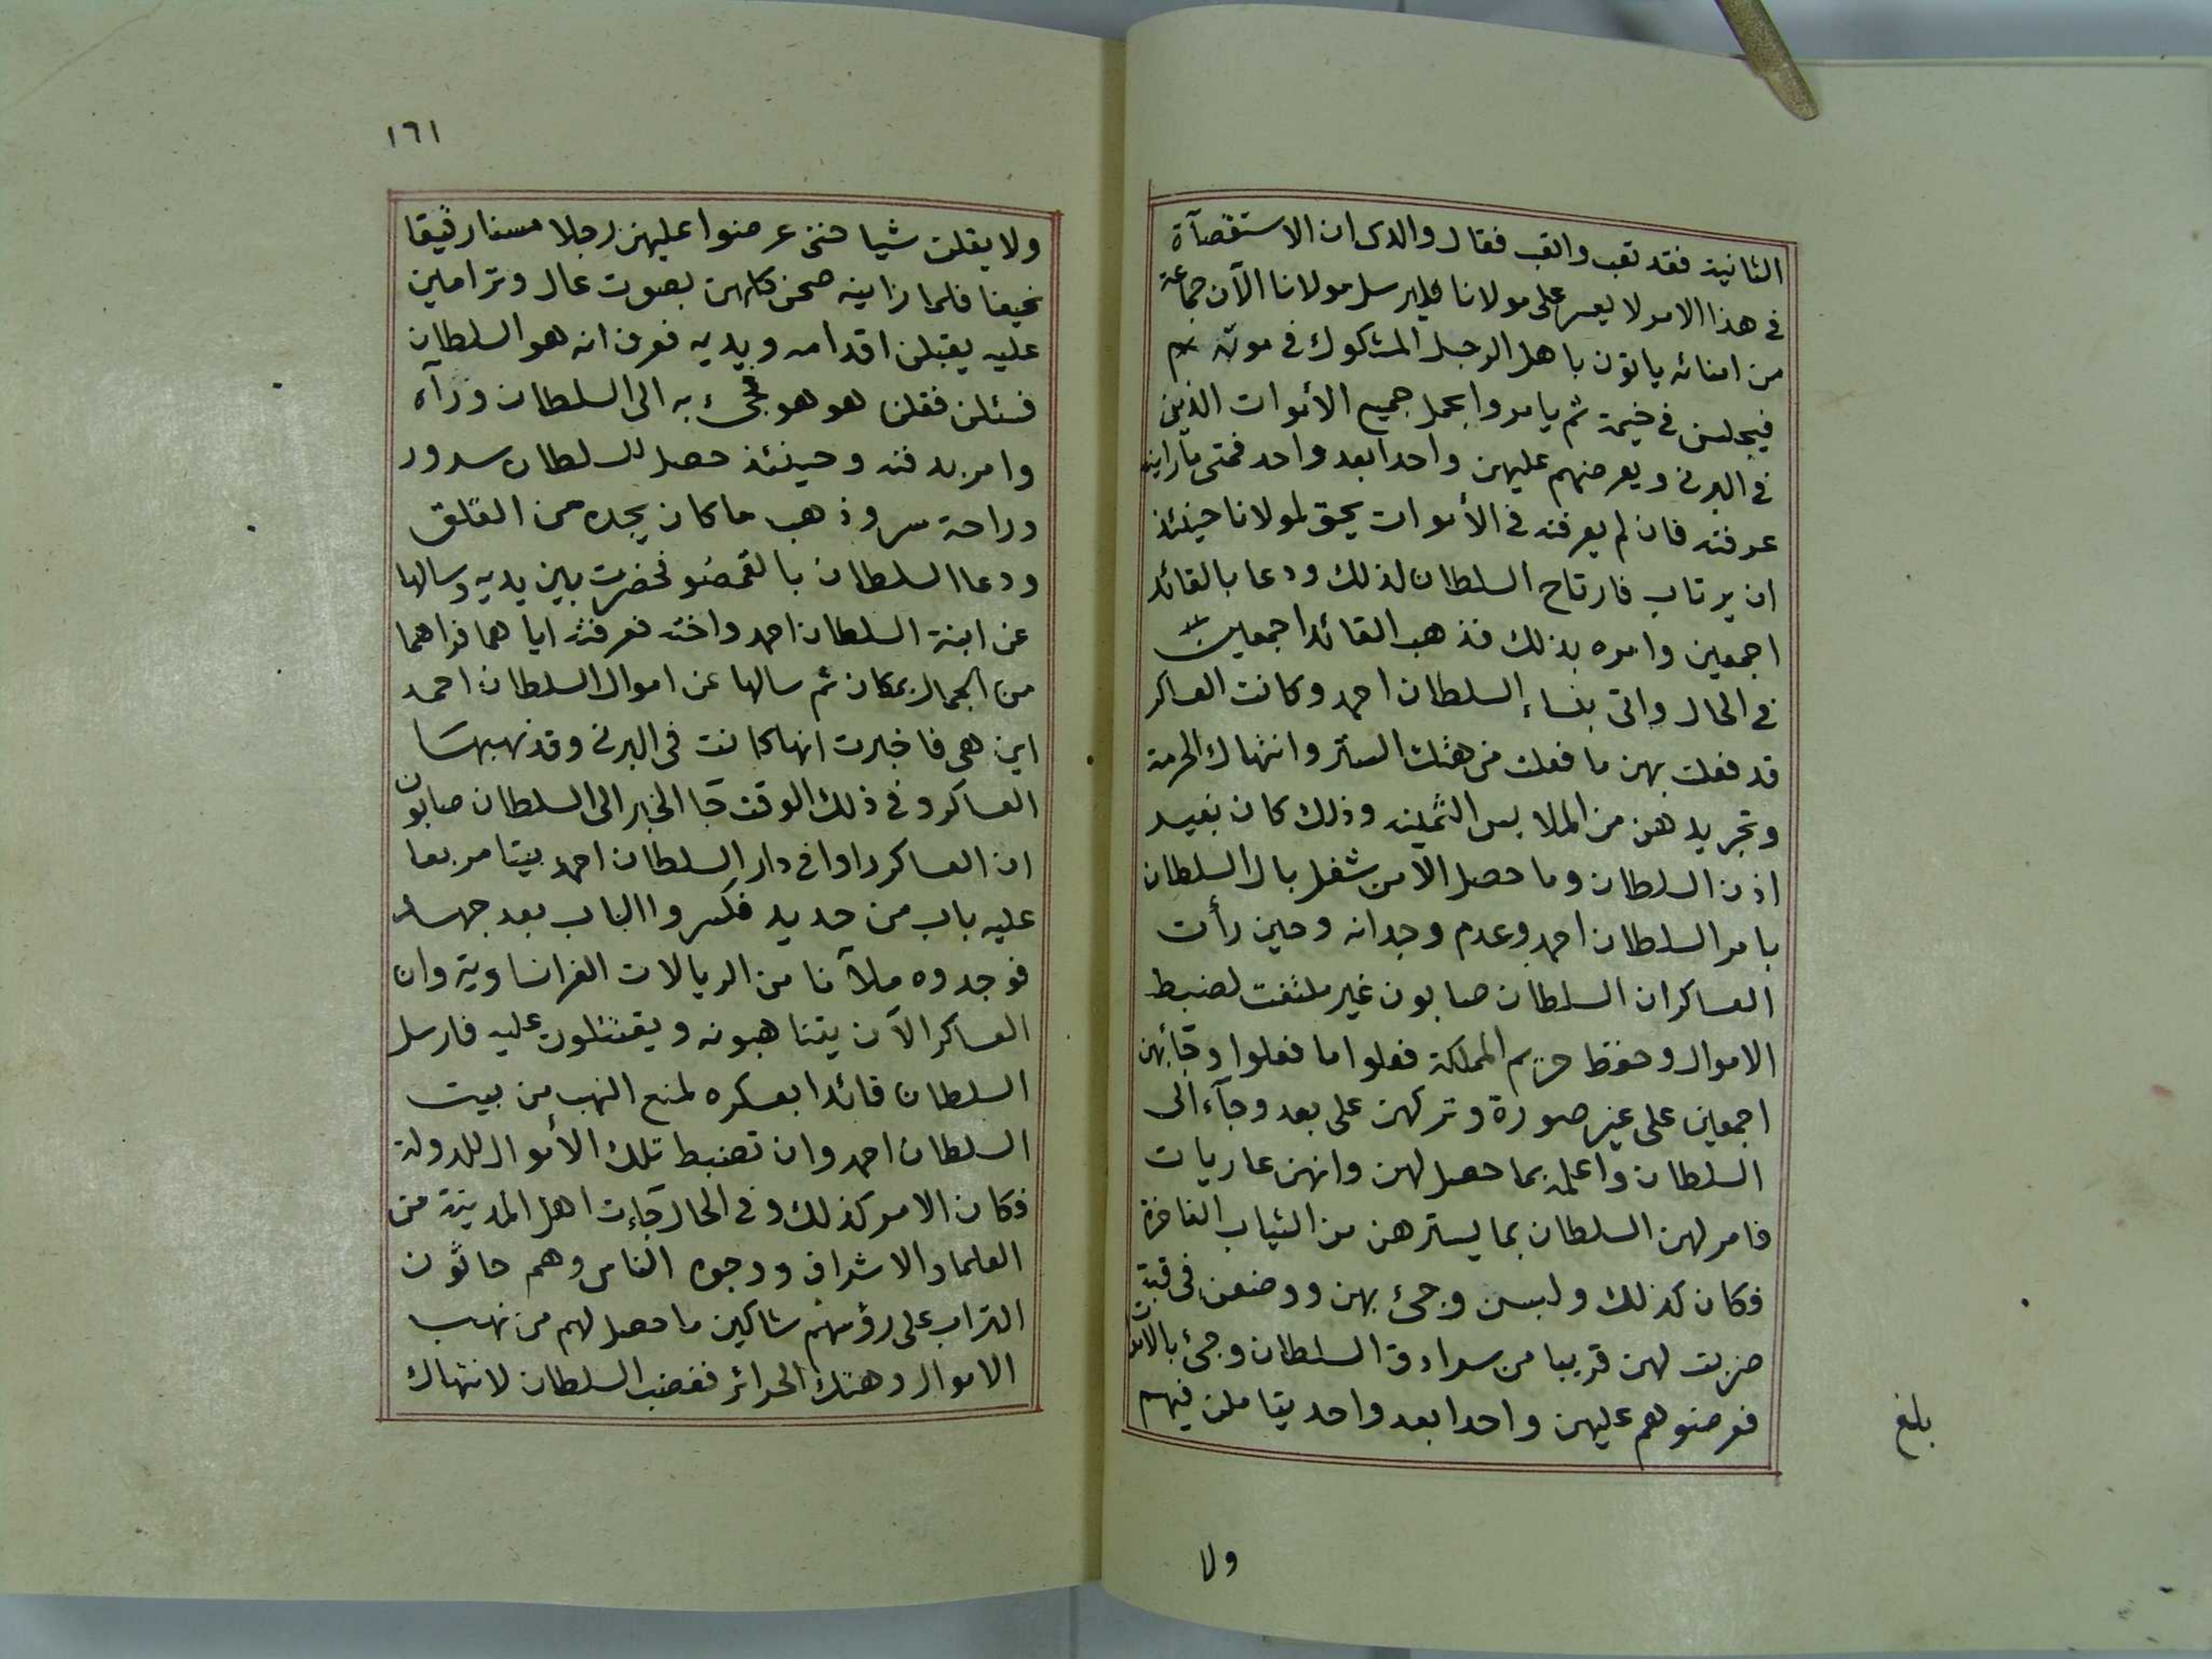 الثانية فقد تعب واتعب فقال والدى ان الاستقصآة
فى هذا الامر لا يعسر على مولانا فليرسل مولانا الآن جماعة
من امنائه ياتون باهل الرجل المشكوك فى موته
فيجلسن فى خيمة ثم يامروا بحمل جميع الأموات الذين
فى البرنى ويعرضهم عليهن واحدا بعد واحد فمتى ما راينه
عرفنه فان لم يعرفنه فى الأموات يحق لمولانا حينئذ
ان يرتاب فارتاح السلطان لذلك ودعا بالقائد
اجمعين وامره بذلك فذهب القائد اجمعين
فى الحال واتى بنساء السلطان احمد وكانت العساكر
قد فعلت بهن ما فعلت من هتك الستر وانتهاك الحرمة
وتجريدهن من الملابس الثمينه وذلك كان بغير
اذن السلطان وما حصل الا من شغل بال السلطان
بامر السلطان احمد وعدم وجدانه وحين رأت
العساكر ان السلطان صابون غير ملتفت لضبط
الاموال وحفظ حريم المملكة فعلوا ما فعلوا وجآ بهن
اجمعين على غير صورة وتركهن على بعد وجآء الى
السلطان واعلمه بما حصل لهن وانهن عاريات
فامر لهن السلطان بما يسترهن من الثياب الفاخرة
فكان كذلك ولبسن وجئ بهن ووضعن فى قبة
ضربت لهن قريبا من سرادق السلطان وجئ بالاموات
فعرضوهم عليهن واحدا بعد واحد يتاملن فيهم
بلغ
ولا
١٦١
ولا يقلن شيا حتى عرضوا عليهن رجلا مسنا رقيقا
نحيفا فلما راينه صحن كلهن بصوت عال وترامين
عليه يقبلن اقدامه ويديه فعرف انه هو السلطان
فسئلن فقلن هو هو فجئ به الى السلطان ورآه
وامر بدفنه وحينئذ حصل للسلطان سرور
وراحة سر وذهب ما كان يجده من القلق
ودعا السلطان بالقمضو فحضرت بين يديه وسالها
عن ابنة السلطان احمد واخته فعرفته اياهما فراهما
من الجمال بمكان ثم سالها عن اموال السلطان احمد
اين هى فاخبرت انها كانت فى البرنى وقد نهبها
العساكر وفى ذلك الوقت جآ الخبر الى السلطان صابون
ان العساكر راوا فى دار السلطان احمد بيتا مربعا
عليه باب من حديد فكسروا الباب بعد جهد
فوجدوه ملآنا من الريالات الفرانساوية وان
العساكر الآن يتناهبونه ويقتتلون عليه فارسل
السلطان قائدا بعسكره لمنع النهب من بيت
السلطان احمد وان تضبط تلك الأموال للدولة
فكان الامر كذلك وفى الحال جآءت اهل المدينة من
العلما والاشراف ووجوه الناس وهم حاثون
التراب على رؤسهم شاكين ما حصل لهم من نهب
الاموال وهتك الحرائر فغضب السلطان لانتهاك